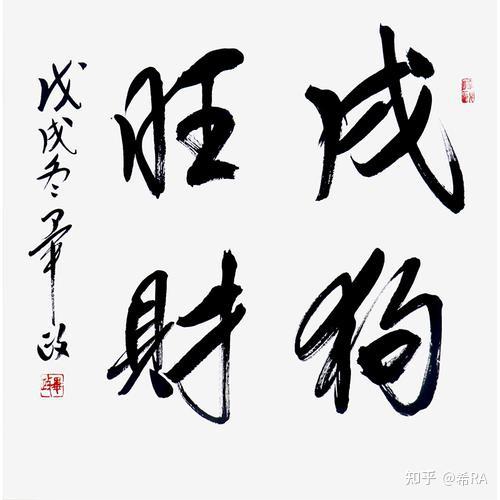 戌狗
旺財
戊戌冬
知乎 @希RA